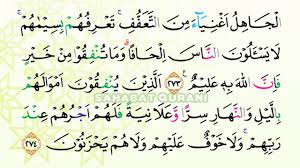 الْجَاهِلُ اَغْنِيَاۤءَ مِنَ التَّعَفُّفِۚ تَعْرِفُهُمْ بِسِيْمٰهُمْۚ
لَا يَسْـَٔلُوْنَ النَّاسَ اِلْحَافًاۗ وَمَا تُنْفِقُوْا مِنْ خَيْرٍ
فَاِنَّ اللّٰهَ بِهٖ عَلِيْمٌ ࣖ ٢٧٣ اَلَّذِيْنَ يُنْفِقُوْنَ اَمْوَالَهُمْ
بِالَّيْلِ وَالنَّهَارِ سِرًّا وَّعَلَانِيَةً فَلَهُمْ اَجْرُهُمْ عِنْدَ
رَبِّهِمْۚ وَلَا خَوْفٌ عَلَيْهِمْ وَلَا هُمْ يَحْزَنُوْنَ ٢٧٤